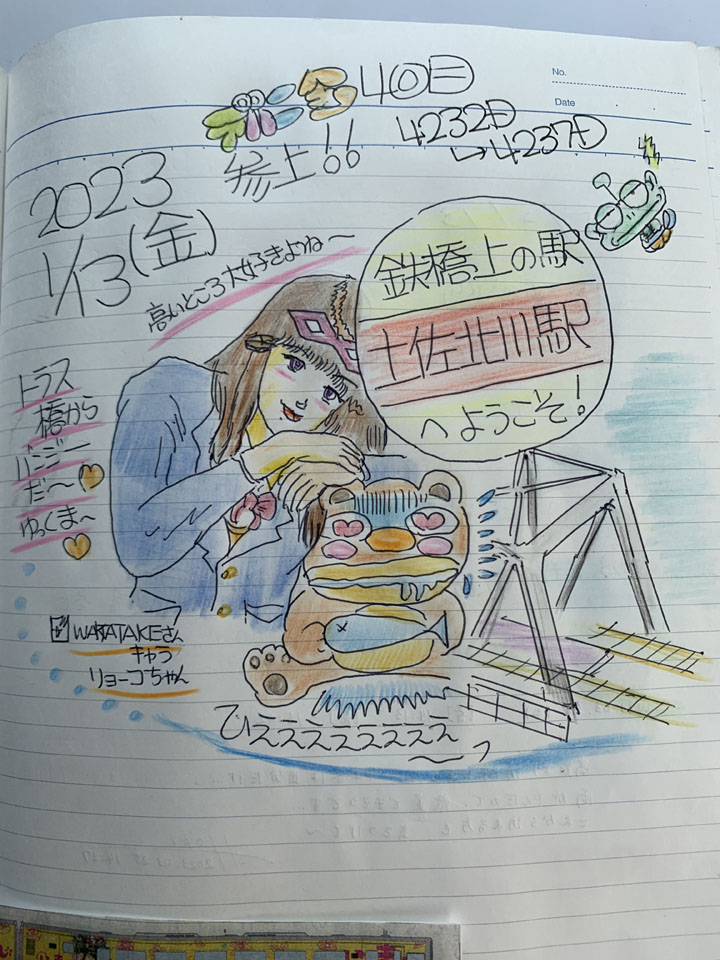 No.
Date
4回目
4232D
→4237D
参上!!
2023
1/13(金)
高いところ大好きよね〜
鉄橋上の駅
土佐北川駅
へようこそ!
トラス
橋から
バンジー
だ〜
ゆっくま〜
WARATAKEさん
キャラ
リョーコちゃん
ひえええええええ
〜っ